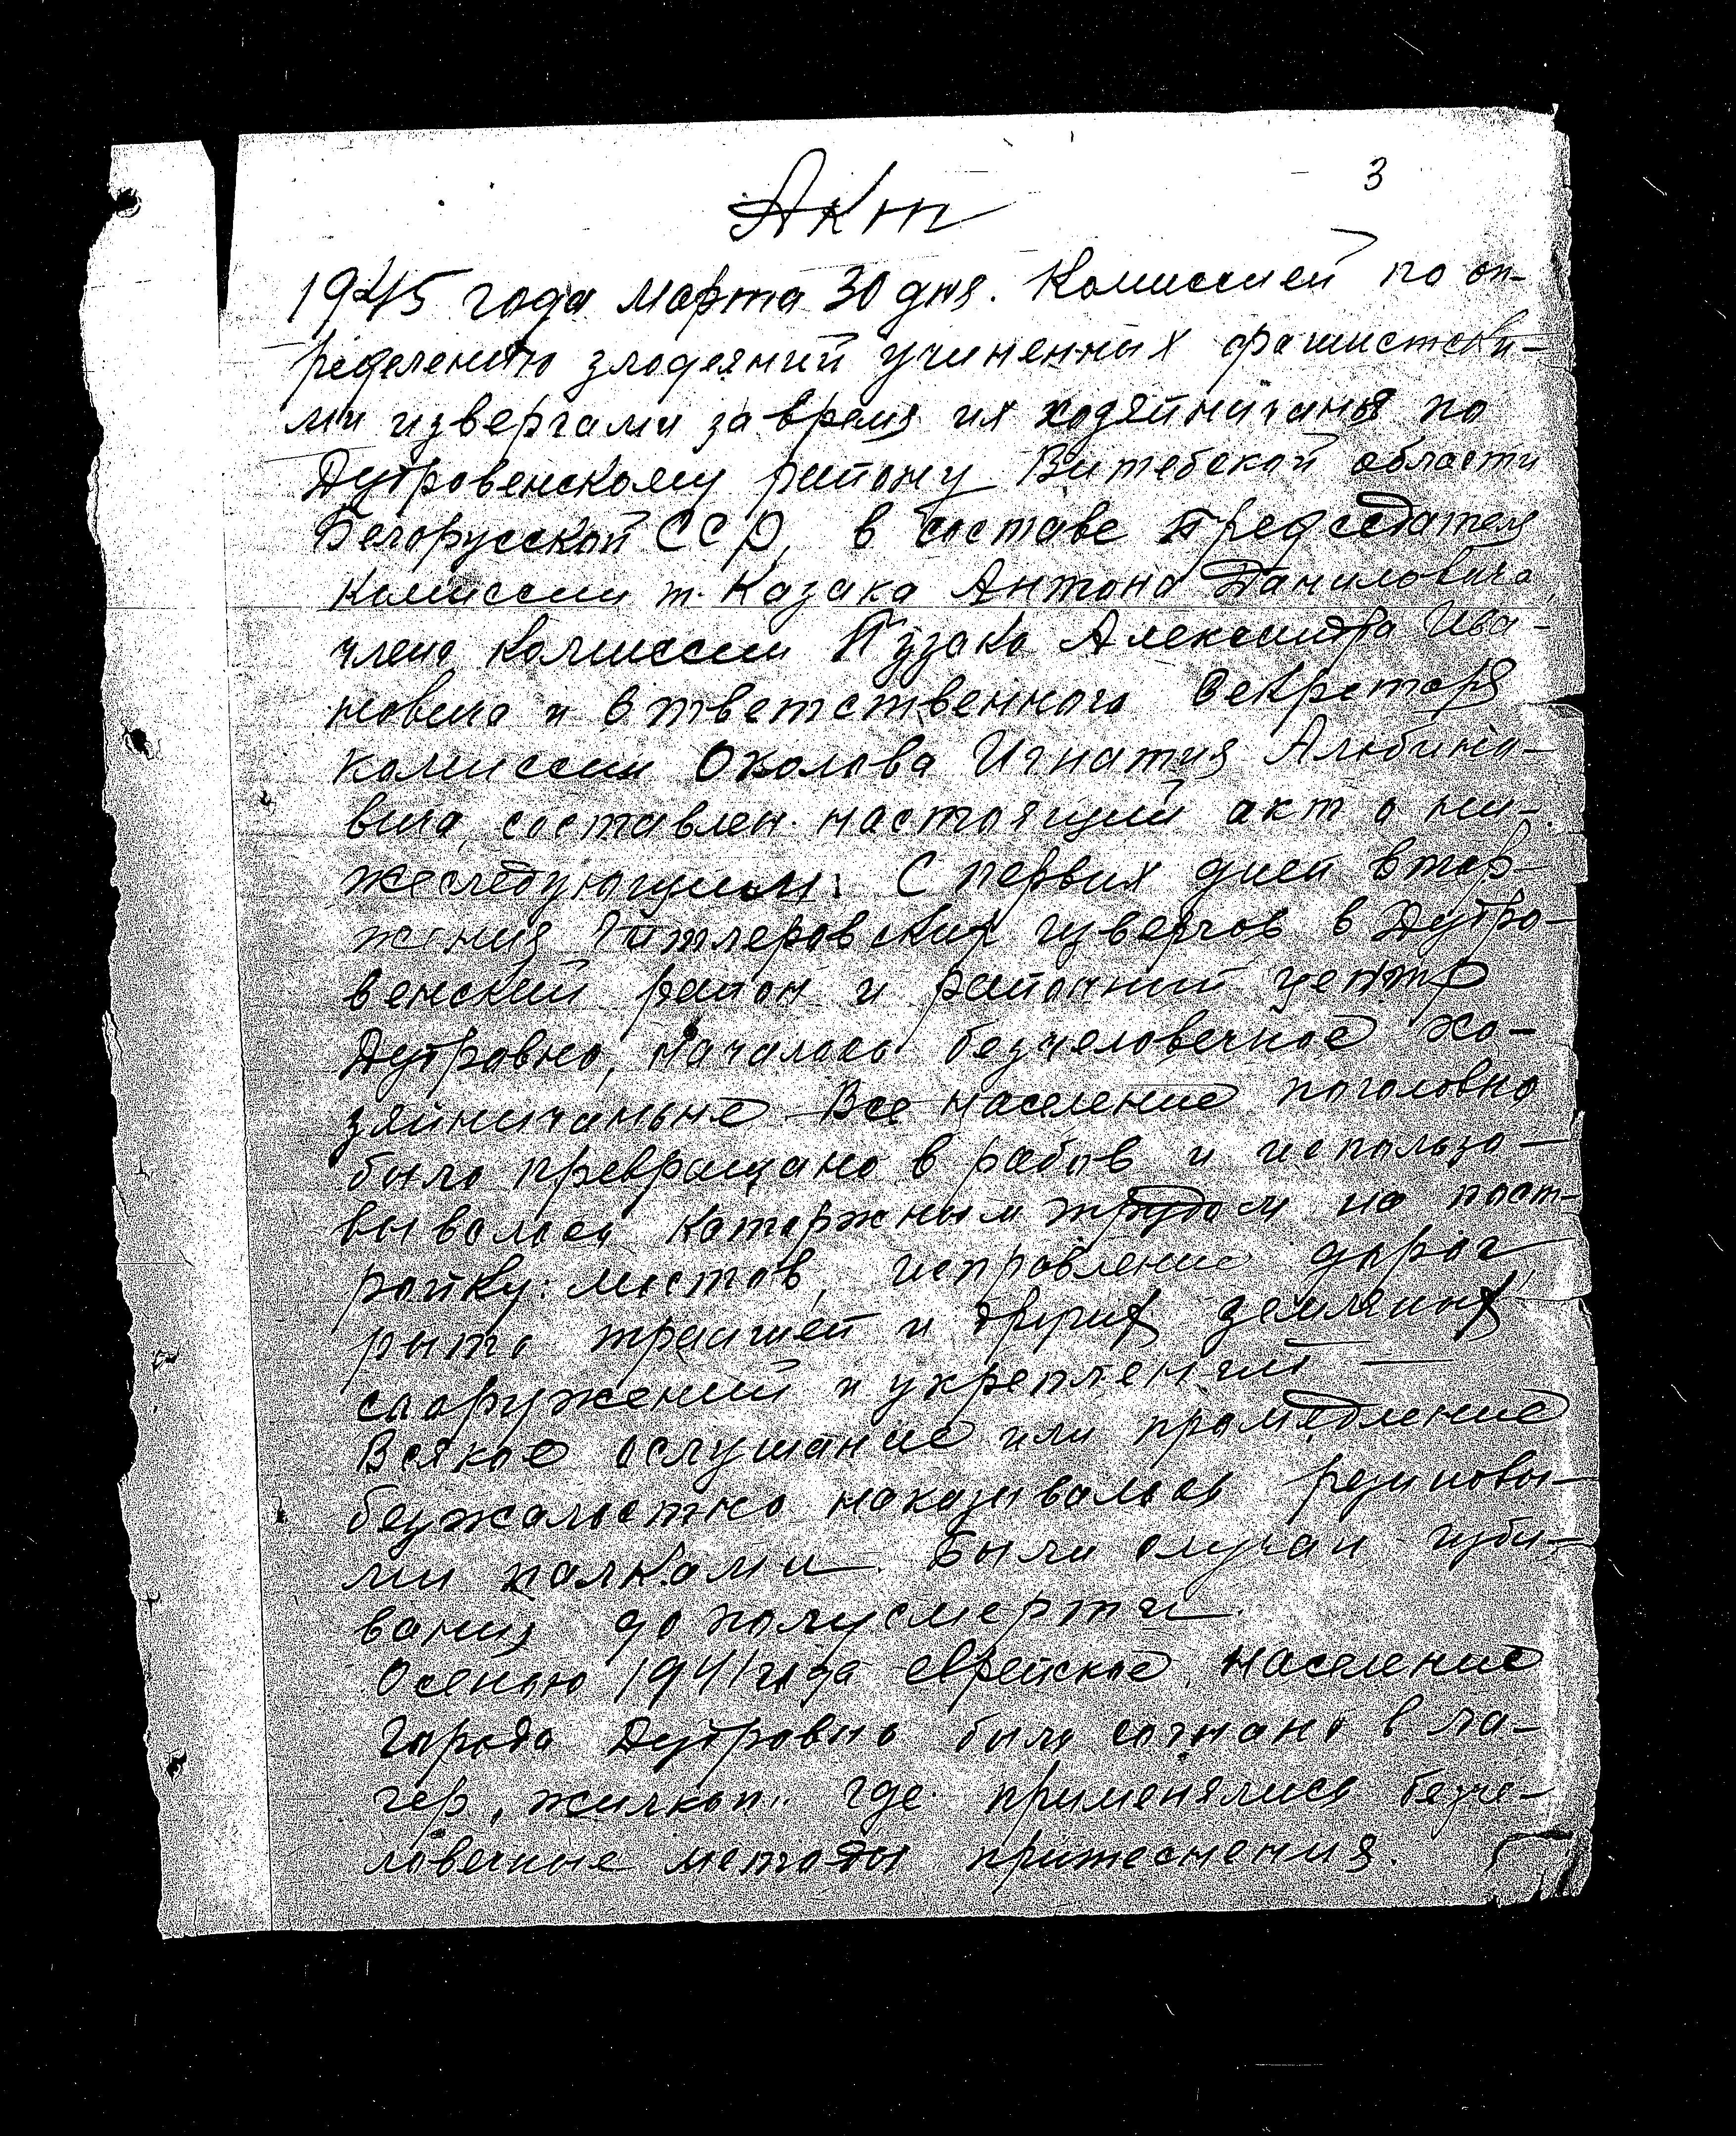 3
Акт
1945 года марта 30 дня. Комиссией по оп-
ределению злодеяний учиненных фашистски-
ми извергами за время их хозяйничанья по
Дубровенскому району Витебской области
Белорусской ССР, в составе Председателя
комиссии т. Казака Антона Даниловича,
члена комиссии Пузака Александра Ива-
новича и ответственного секретаря
комиссии Околова Игнатия Альбино-
вича, составлен настоящий акт о ни-
жеследующем: С первых дней втор-
жения Гитлеровских извергов в Дубро-
венский район и районный центр
Дубровно, началось безчеловечное хо-
зяйничанье Все население поголовно
было превращано в рабов и использо-
вывалось каторжным трудом на пост-
ройку: мостов, исправление дорог
рыть траншей и других земляных
сооружений и укреплений —
Всякое ослушание или промедление
безжалостно наказывалось резиновы-
ми палками. Были случаи изби-
вания до полусмерти.
Осенью 1941 года еврейское население
города Дубровно было согнано в ла-
гер, "жилкоп" где применялись безче-
ловечные методы притеснения.